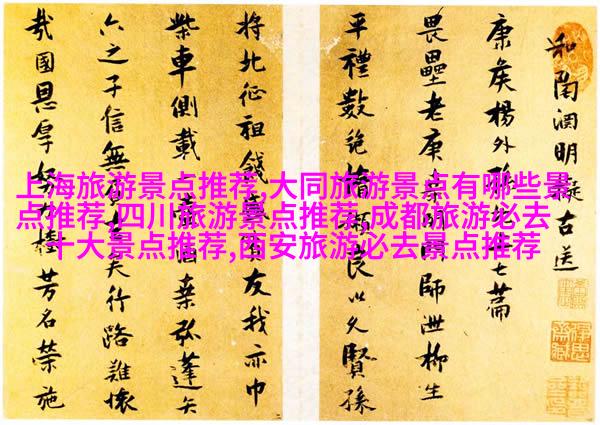 上海旅游景点推荐,大同旅游景点有哪些景
点推荐,四川旅游景点推荐,成都旅游必去
十大景点推荐,西安旅游必去景点推荐
和陶淵明擬古送
康侯楊外孫七篇
畏壘老庚桑師洩柳生
平禮數絶良以久賢孫
將北征祖餞友我亦巾
柴車側載桑弧蓬矢
六之子信無矣行路難懷
我國恩厚努力芳名榮施